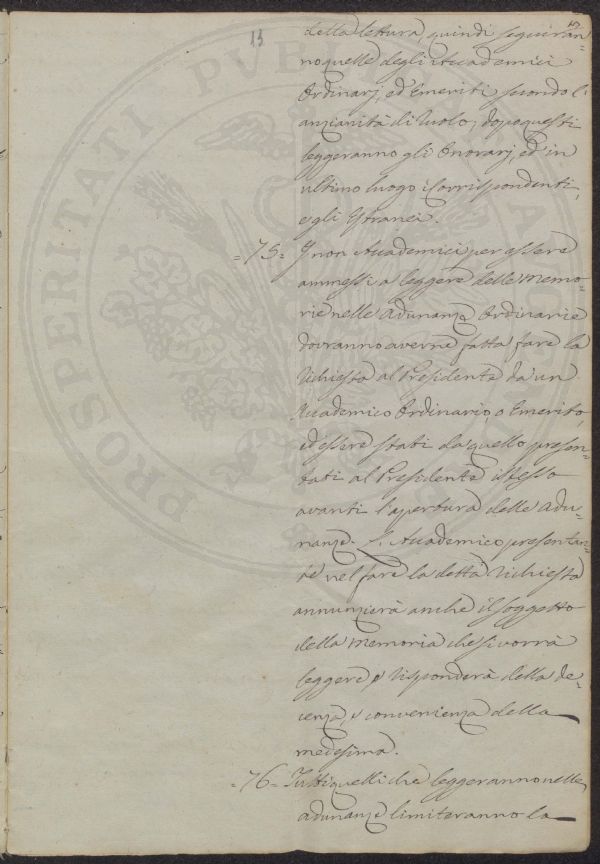 13
della lettura, quindi seguiran-
no quelle degli Accademici
Ordinarj, ed Emeriti secondo l'
anzianità di Ruolo; dopo questi
leggeranno gli Onorarj, ed in
ultimo luogo i Corrispondenti,
e gli Estranei.
=75= I non Accademici per essere
ammessi a leggere delle Memo-
rie nelle Adunanze Ordinarie
dovranno averne fatta fare la
richiesta al Presidente da un
Accademico Ordinario, o Emerito,
ed essere stati da quello presen-
tati al Presidente istesso
avanti l'apertura delle Adu-
nanze. L'Accademico presentan-
te nel fare la detta richiesta
annunzierà anche il soggetto
della Memoria che si vorrà
leggere e risponderà della de-
cenza, e convenienza della
medesima.
=76= Tutti quelli che leggeranno nelle
adunanze limiteranno la
PROSPERITATI PUBLICAE